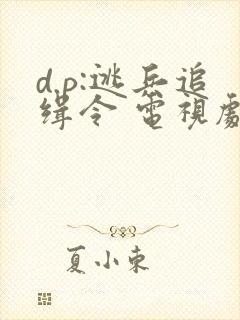 d.p:逃兵追
缉令 電視劇
夏小束